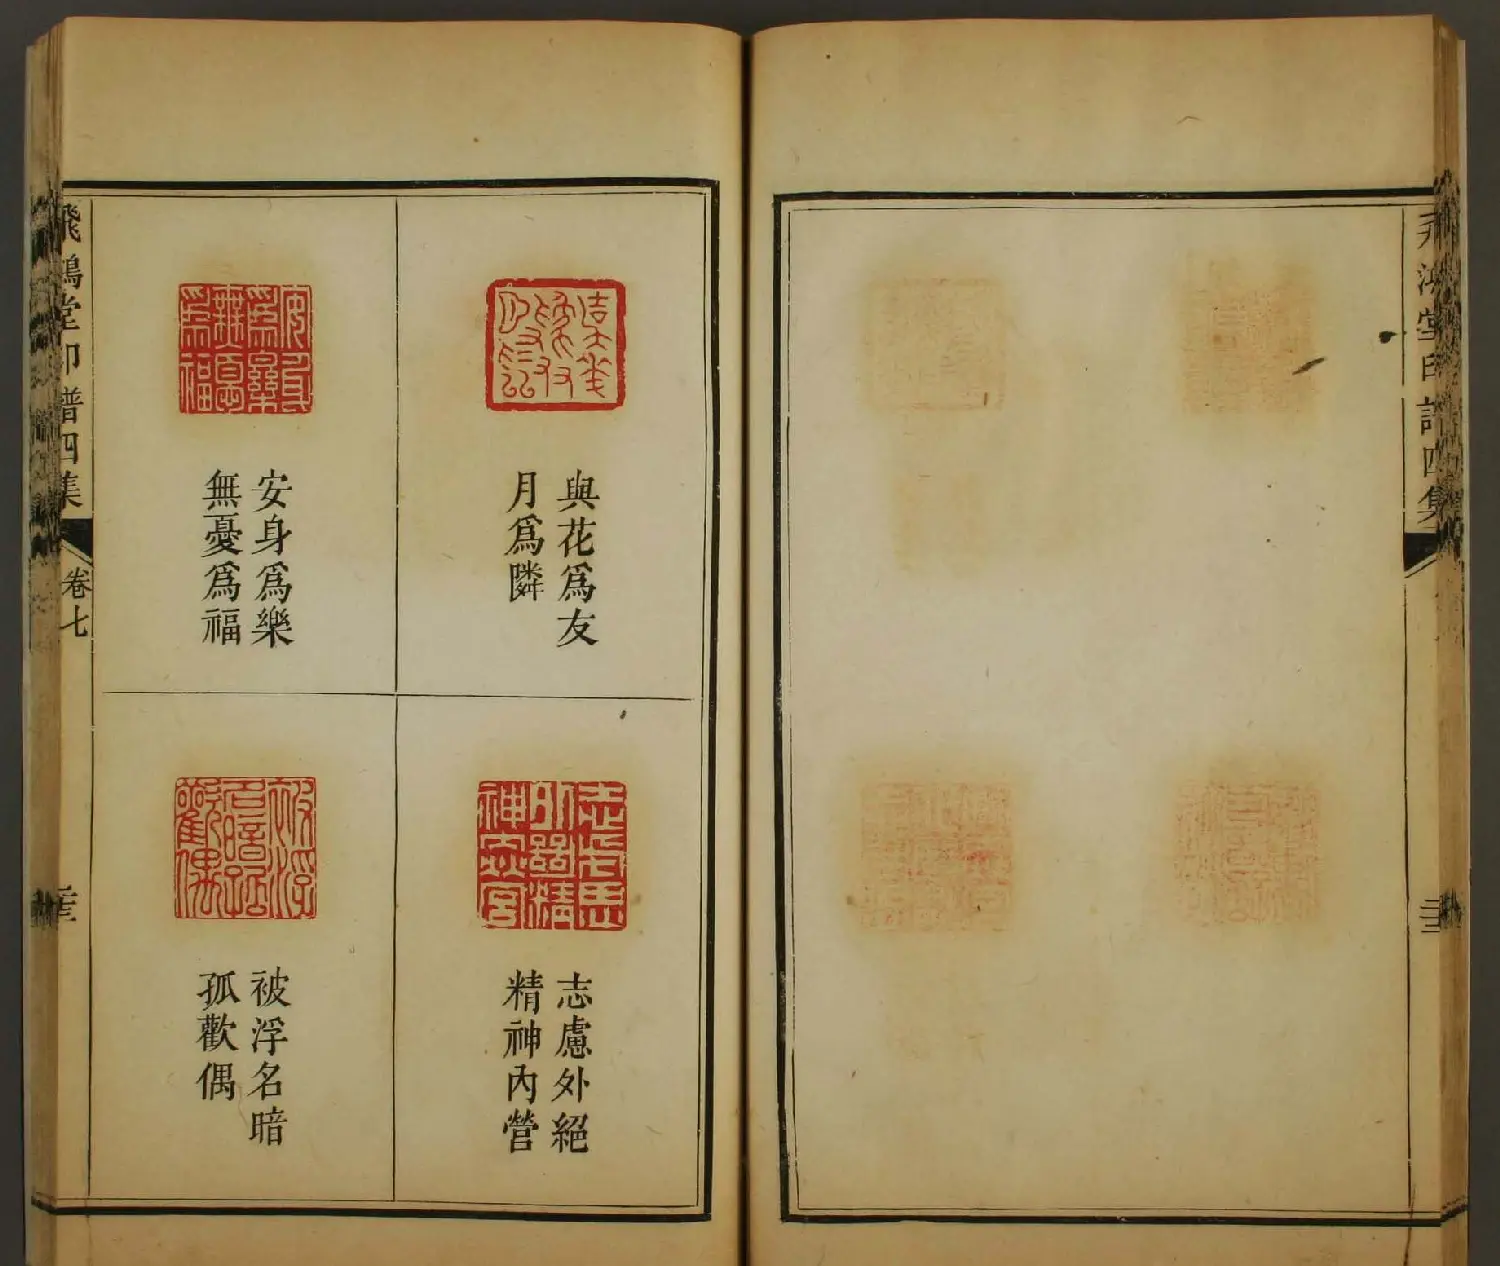 與花為友
月為隣
安身為樂
無憂為福
志慮外絕
精神內營
被浮名暗
孤歡偶
飛鴻堂印譜四集
卷七
二三
鴻堂印譜四集